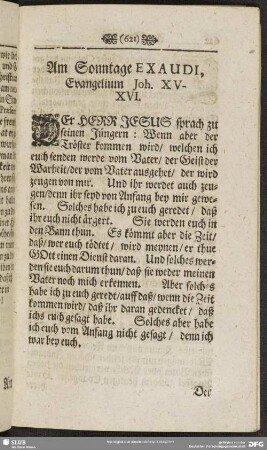 (621)
Am Sonntage EXAUDI,
Evangelium Joh. XV-
XVI.
DEr HERR JESUS sprach zu
seinen Jüngern: Wenn aber der
Tröster kommen wird/ welchen ich
euch senden werde vom Vater/ der Geist der
Warheit/ der vom Vater ausgehet/ der wird
zeugen von mir. Und ihr werdet auch zeu-
gen/ denn ihr seyd von Anfang bey mir gewe-
sen. Solches habe ich zu euch geredet/ daß
ihr euch nicht ärgert. Sie werden euch in
den Bann thun. Es kömmt aber die Zeit/
daß/ wer euch tödtet/ wird meynen/ er thue
GOtt einen Dienst daran. Und solches wer-
den sie euch darum thun/ daß sie weder meinen
Vater noch mich erkennen. Aber solches
habe ich zu euch geredt/ auff daß/ wenn die Zeit
kommen wird/ daß ihr daran gedencket/ daß
ichs euch gesagt habe. Solches aber habe
ich euch vom Anfang nicht gesagt/ denn ich
war bey euch.
Der
SLUB
DFG